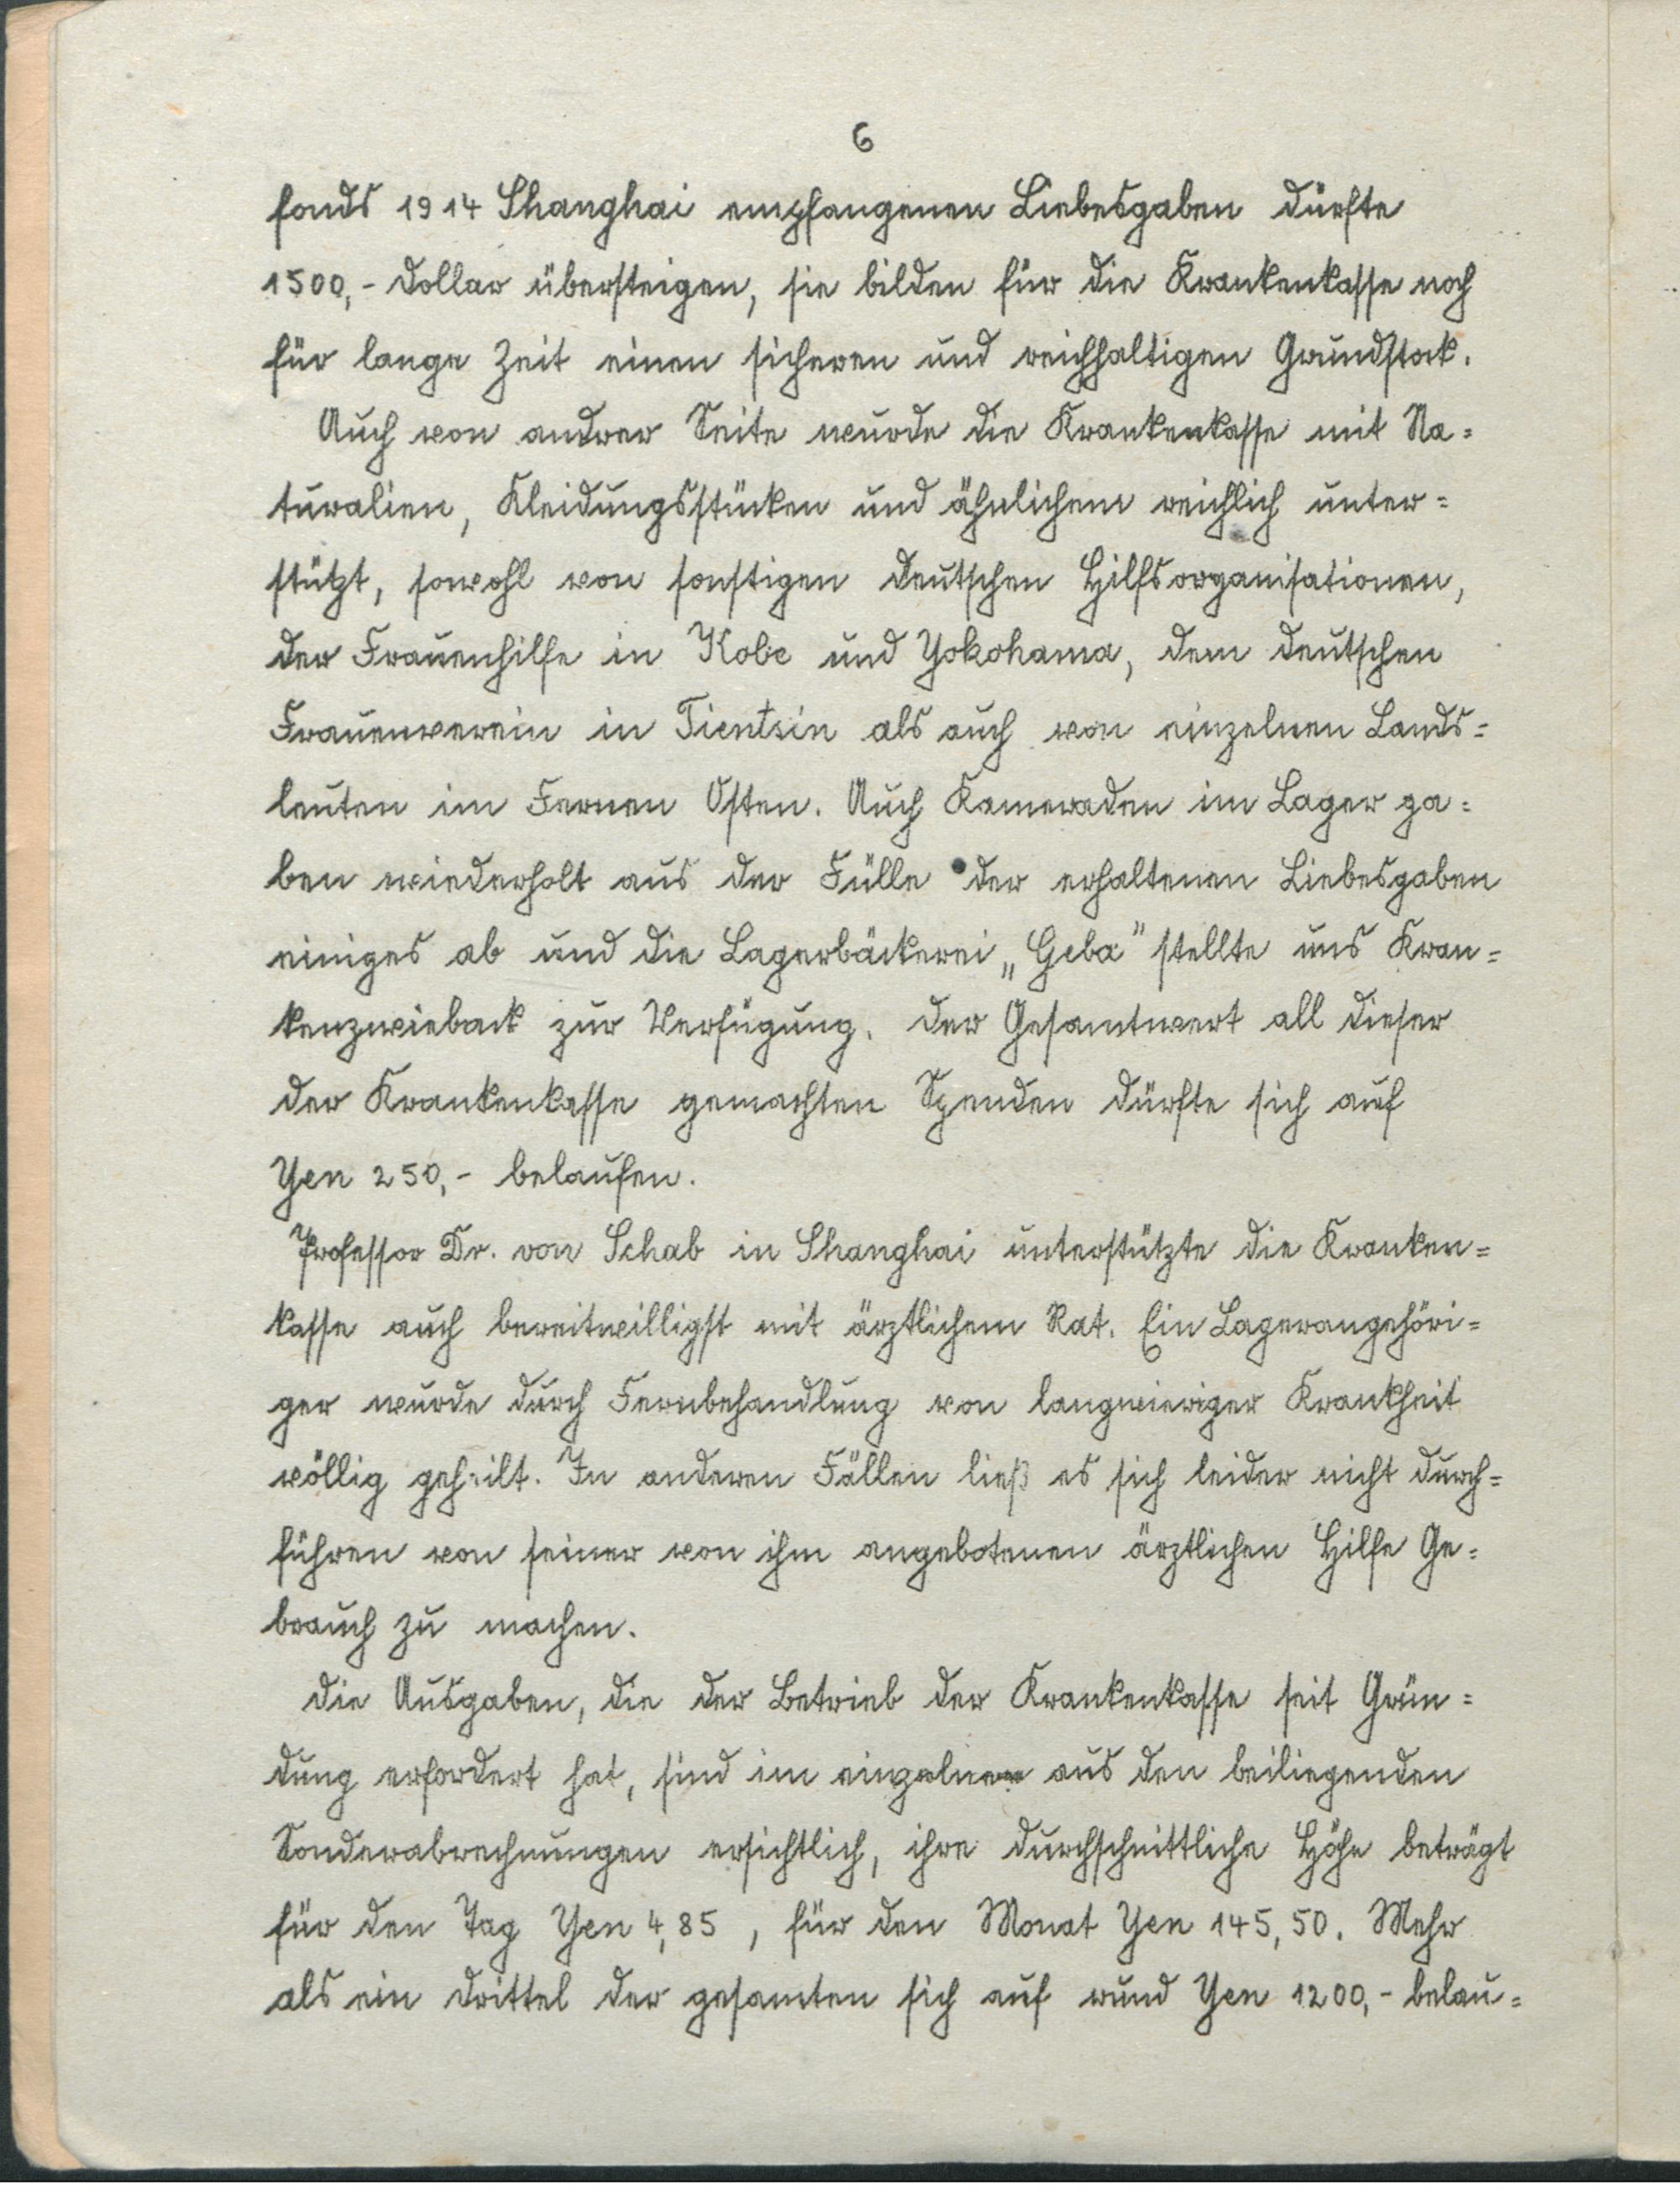 6
fonds 1914 Shanghai empfangenen Liebesgaben dürfte
1500,- Dollar übersteigen, sie bilden für die Krankenkasse noch
für lange Zeit einen sicheren und reichhaltigen Grundstock.
Auch von andrer Seite wurde die Krankenkasse mit Na=
turalien, Kleidungsstücken und ähnlichem reichlich unter=
stützt, sowohl von sonstigen deutschen Hilfsorganisationen,
der Frauenhilfe in Kobe und Yokohama, dem deutschen
Frauenverein in Tientsin als auch von einzelnen Lands=
leuten im Fernen Osten. Auch Kameraden im Lager ga=
ben wiederholt aus der Fülle der erhaltenen Liebesgaben
einiges ab und die Lagerbäckerei „Geba" stellte uns Kran=
kenzwieback zur Verfügung. Der Gesamtwert all dieser
der Krankenkasse gemachten Spenden dürfte sich auf
Yen 250,- belaufen.
Professor Dr. von Schab in Shanghai unterstützte die Kranken=
kasse auch bereitwilligst mit ärztlichem Rat. Ein Lagerangehöri=
ger wurde durch Fernbehandlung von langwieriger Krankheit
völlig geheilt. In anderen Fällen ließ es sich leider nicht durch=
führen von seiner von ihm angebotenen ärztlichen Hilfe Ge=
brauch zu machen.
Die Ausgaben, die der Betrieb der Krankenkasse seit Grün=
dung erfordert hat, sind im einzelnen aus den beiliegenden
Sonderabrechnungen ersichtlich, ihre durchschnittliche Höhe beträgt
für den Tag Yen 4,85, für den Monat Yen 145,50. Mehr
als ein Drittel der gesamten sich auf rund Yen 1200,- belau=